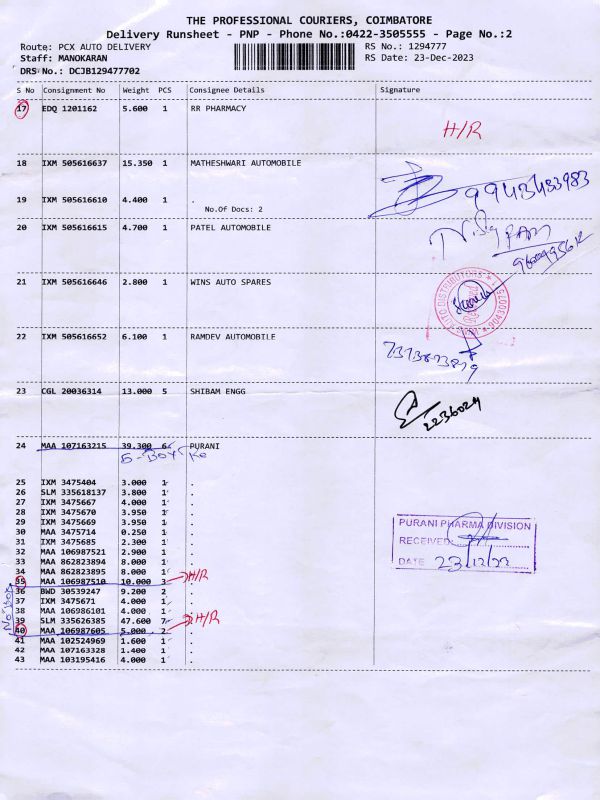 THE PROFESSIONAL COURIERS, COIMBATORE
Delivery Runsheet - PNP - Phone No.:0422-3505555 - Page No.:2
Route: PCX AUTO DELIVERY RS No.: 1294777
Staff: MANOKARAN RS Date: 23-Dec-2023
DRS No.: DCJB129477702
S No Consignment No Weight PCS Consignee Details Signature
17 EDQ 1201162 5.600 1 RR PHARMACY
H/R
18 IXM 505616637 15.350 1 MATHESHWARI AUTOMOBILE
19 IXM 505616610 4.400 1 .
No.Of Docs: 2
20 IXM 505616615 4.700 1 PATEL AUTOMOBILE
21 IXM 505616646 2.800 1 WINS AUTO SPARES
22 IXM 505616652 6.100 1 RAMDEV AUTOMOBILE
23 CGL 20036314 13.000 5 SHIBAM ENGG
24 MAA 107163215 39.300 6 PURANI
25 IXM 3475404 3.000 1 .
26 SLM 335618137 3.800 1 .
27 IXM 3475667 4.000 1 .
28 IXM 3475670 3.950 1 .
29 IXM 3475669 3.950 1 .
30 MAA 3475714 0.250 1 .
31 IXM 3475685 2.300 1 .
32 MAA 106987521 2.900 1 .
33 MAA 862823894 8.000 1 .
34 MAA 862823895 8.000 1 .
35 MAA 106987510 10.000 3 H/R
36 BWD 30539247 9.200 2 .
37 IXM 3475671 4.000 1 .
38 MAA 106986101 4.000 1 .
39 SLM 335626385 47.600 7 H/R
40 MAA 106987605 5.000 2 .
41 MAA 102524969 1.600 1 .
42 MAA 107163328 1.400 1 .
43 MAA 103195416 4.000 1 .
PURANI PHARMA DIVISION
RECEIVED:
DATE 23/12/23